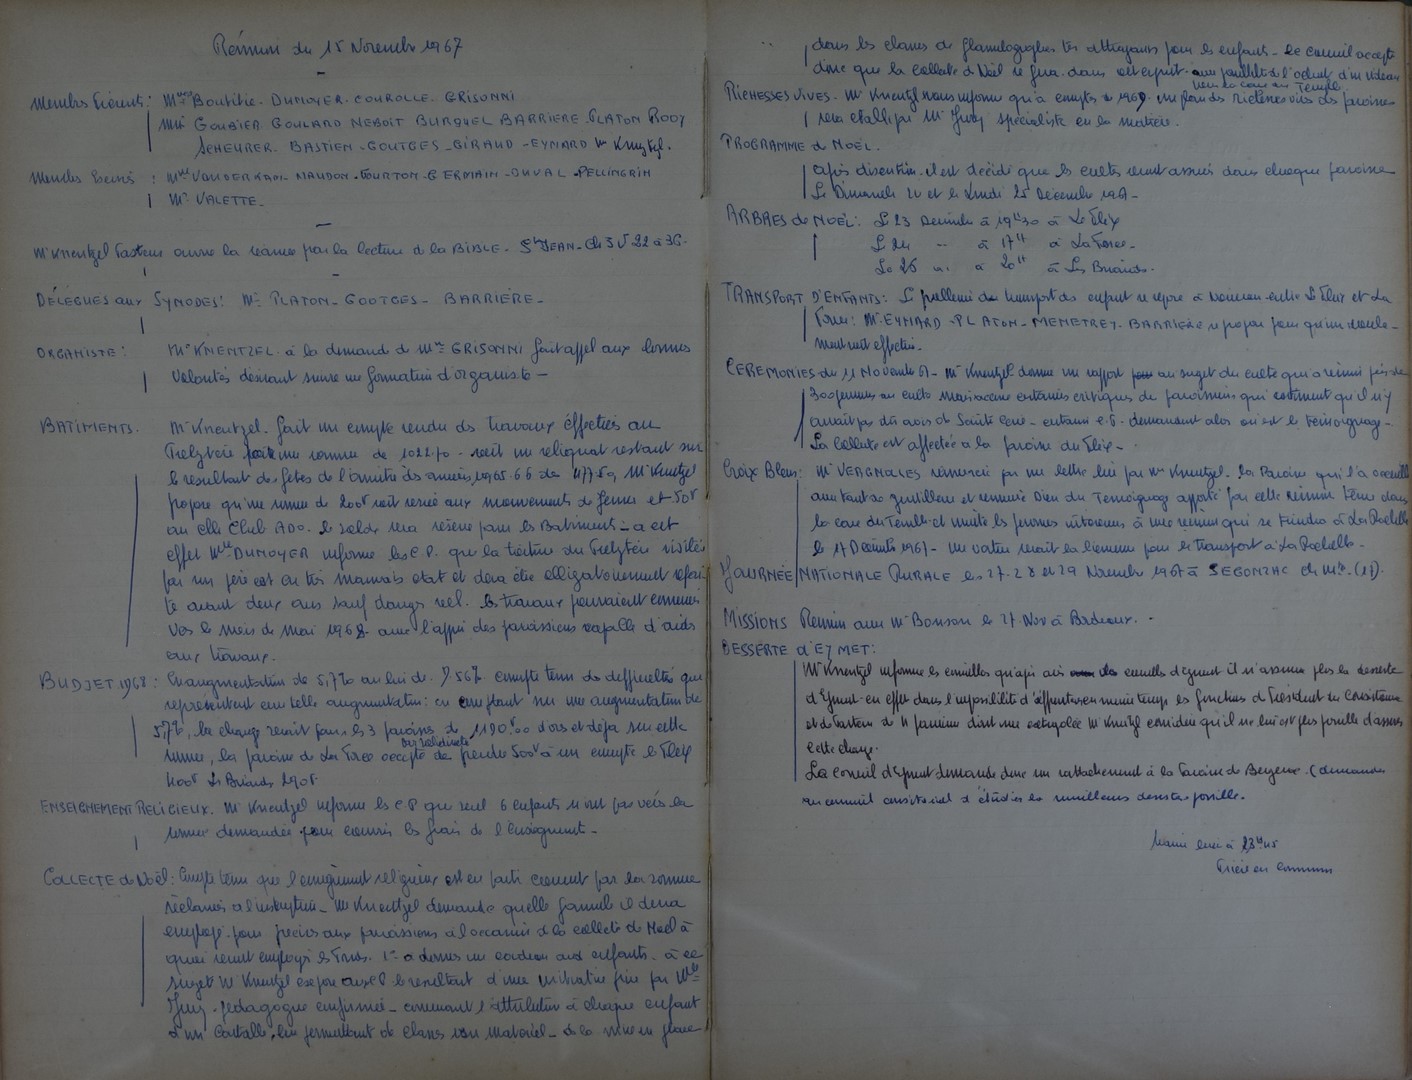 Réunion du 15 Novembre 1967
Membres Présents : Mmes Boutitie. DUMOYER. COUROLLE. GRISONNI
MM. GOUBIER. GOULARD NEBOIT BURQUEL BARRIERE PLATON ROOY
SCHEURER. BASTIEN - GOUTGES - GIRAUD - EYNARD Mr Knentzel.
Membres Excusés : Mmes VANDERKAM - NAUDON - TOURTON - GERMAIN - DUVAL - PELLINGRIN
Mr VALETTE -
Mr Knentzel Pasteur ouvre la séance par la lecture de la BIBLE - St JEAN - Ch 3 V 22 à 36.
DÉLÉGUÉS aux SYNODES : Mrs PLATON - GOUTGES - BARRIÈRE -
ORGANISTE : Mr KNENTZEL à la demande de Mme GRISONNI fait appel aux bonnes
Volontés désirant suivre une formation d'organiste -
BATIMENTS. Mr Knentzel. fait un compte rendu des travaux effectués au
Presbytère pour une somme de 1022.70 - soit un reliquat restant sur
le resultant des fêtes de l'amitié des années 1965-66 de Mr Knentzel
propose qu'une somme de 200f soit versée aux mouvements de jeunes et 50f
au Club ADO. le solde sera réservé pour les Batiments - a cet
effet Mme DUMOYER informe les C.P. que la toiture du Presbytère visitée
par un est en très mauvais etat et devra être obligatoirement refai-
te avant deux ans sauf danger réel. les travaux pourraient commencer
Vers le mois de mai 1968 - avec l'appui des paroissiens capable d'aide
aux travaux.
BUDJET 1968 : Cu augmentation de 5,7% au lieu de 9.56% compte tenu des difficultés que
représentent une telle augmentation : en sur une augmentation de
5,7%, la charge serait pour les 3 paroisses de 1190f.00 d'ors et déja sur cette
somme, la paroisse de La Force accepte de prendre 500f à son compte le Fleix
400f Les Briands 290f.
ENSEIGNEMENT RELIGIEUX. Mr Knentzel informe les C P que seul 6 enfants n'ont pas versé la
somme demandée pour couvrir les frais de l'Enseignement -
COLLECTE de Noël : Compte tenu que l'enseignement religieux est en partie couvert par la somme
réclamée a l'inscription - Mr Knentzel demande quelle formule il devra
employé pour préciser aux paroissiens à l'occasion de la collecte de Noël à
quoi seront employés les fonds. 1° a donner un cadeau aux enfants. à ce
sujet Mr Knentzel expose aux CP le resultant d'une initiative prise par Mlle
Jury - pedagogue confirmée - concernant l'attribution à chaque enfant
d'un Cartable, lui permettant de classer son materiel - de la mise en place
dans les classes de flanellographes très attrayants pour les enfants - Le conseil accepte
donc que la collecte de Noël se fera dans cet esprit - avec possibilité de l'achat d'un rideau
RICHESSES VIVES. Mr Knentzel nous informe qu'a compter de 1967 un plan des richesses vives des paroisses
sera établi par Mr Jury spécialiste en la matière.
PROGRAMME de NOËL.
après discution - il est décidé que les cultes seront assurés dans chaque paroisse
Le Dimanche 24 et le Lundi 25 Décembre 1967 -
ARBRES de NOËL : Le 23 Décembre à 19H30 à Le Fleix
Le 24 - à 17H à La Force -
Le 25 - à 20H à Les Briands.
TRANSPORT D'ENFANTS : Le problème du transport des enfants se repose à nouveau entre Le Fleix et La
Force : Mrs EYNARD - PLATON - MEMETREY - BARRIERE se propose pour qu'un roule-
ment soit effectué.
CEREMONIES du 11 Novembre 67 - Mr Knentzel donne un rapport au sujet du culte qui a réuni près de
300 personnes au culte certaines critiques de paroissiens qui estiment qu'il n'y
avait pas de Sainte Cene - certains C.P. demandent alors où est le témoignage -
La collecte est affectée a la paroisse du Fleix -
Croix Bleue : Mr VERGNOLES remercie par une lettre lue par Mr Knentzel. la Paroisse qui l'a accueilli
avec tant de gentillesse et remercie Dieu du Temoignage apporté par cette réunion tenue dans
la cour du Temple et invite les personnes interessées à une réunion qui se tiendra à La Rochelle
le 17 Décembre 1967 - une voiture serait la bienvenue pour le transport à La Rochelle -
JOURNÉE NATIONALE RURALE les 27-28 et 29 Novembre 1967 à SEGONZAC Ch Mme. (19).
MISSIONS Réunion avec Mr Bonson le 27 Nov à Bordeaux. -
DESSERTE d'EYMET :
Mr Knentzel informe les conseillers qu'après avis conseillers d'Eymet il n'assume plus la desserte
d'Eymet - en effet dans l'impossibilité d'effectuer en même temps les fonctions de Président du Consistoire
et de Pasteur de 4 paroisses dont une Mr Knentzel considere qu'il ne lui est plus possible d'assurer
cette charge.
Le Conseil d'Eymet demande donc un rattachement à la Paroisse de Bergerac. (demander
au conseil consistorial d'étudier la meilleure desserte possible.
Séance levée à 23H45
Prière en commun